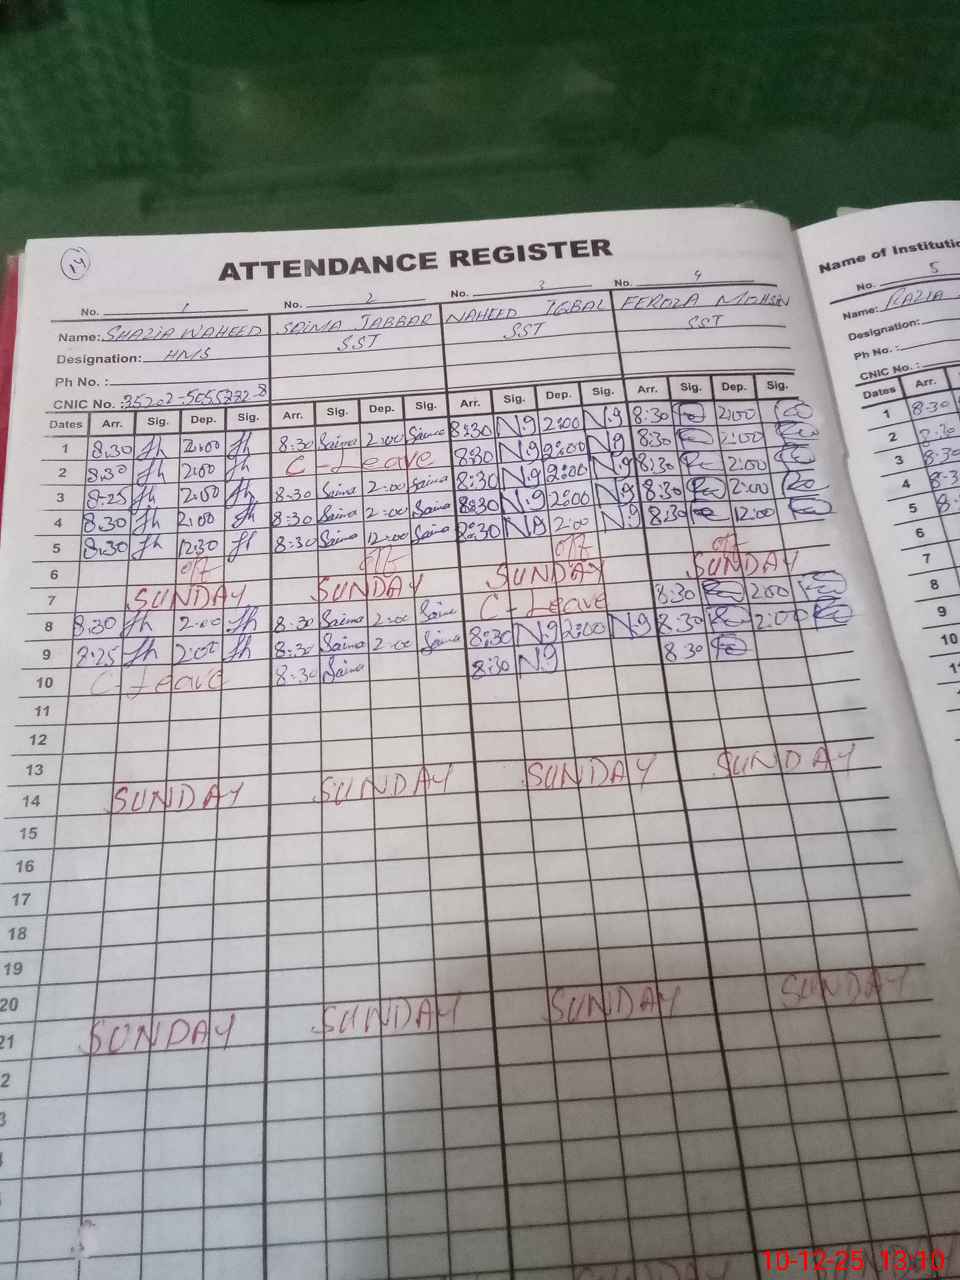 14
ATTENDANCE REGISTER
No. 1 No. 2 No. 3 No. 4
Name: SHAZIA WAHEED SAIMA JABBAR NAHEED IQBAL FEROZA MOHSIN
Designation: HM/S SST SST SST
Ph No. :
CNIC No. :
Dates Arr. Sig. Dep. Sig. Arr. Sig. Dep. Sig. Arr. Sig. Dep. Sig. Arr. Sig. Dep. Sig.
1 8.30 2:00 8:30 Saima 2:00 Saima 8:30 N.9 2:00 N.9 8:30 2:00
2 8.30 2:00 C-Leave 8:30 N.9 2:00 N.9 8:30 2:00
3 8.25 2:00 8:30 Saima 2:00 Saima 8:30 N.9 2:00 N.9 8:30 2:00
4 8.30 2:00 8:30 Saima 2:00 Saima 8:30 N.9 2:00 N.9 8:30 2:00
5 8.30 12.30 8:30 Saima 12:00 Saima 8:30 N9 2:00 N.9 8:30 12:00
6 off off off off
7 SUNDAY SUNDAY SUNDAY SUNDAY
8 8:30 2:00 8:30 Saima 2:00 Saima C-Leave 8:30 2:00
9 8:25 2:00 8:30 Saima 2:00 Saima 8:30 N.9 2:00 N.9 8:30 2:00
10 C-Leave 8:30 Saima 8:30 N.9 8:30
11
12
13
14 SUNDAY SUNDAY SUNDAY SUNDAY
15
16
17
18
19
20
21 SUNDAY SUNDAY SUNDAY SUNDAY
2
3
Name of Instituti
No. 5
Name: RAZIA
Designation:
Ph No. :
CNIC No. :
Dates Arr.
1 8:30
2 8:30
3 8:30
4 8:3
5 8:
6
7
8
9
10
10-12-25 13:10